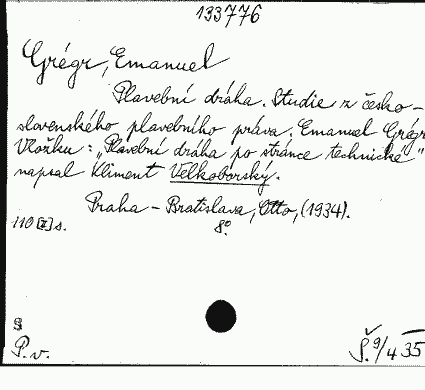 133776
Grégr, Emanuel
Plavební dráha. Studie z česko-
slovenského plavebního práva. Emanuel Grégr
Vložku: „Plavební dráha po stránce technické"
napsal Kliment Velkoborský.
Praha - Bratislava, Otto, (1934).
110 [I] s. 8°.
S
P. v. Š. 9/4 35